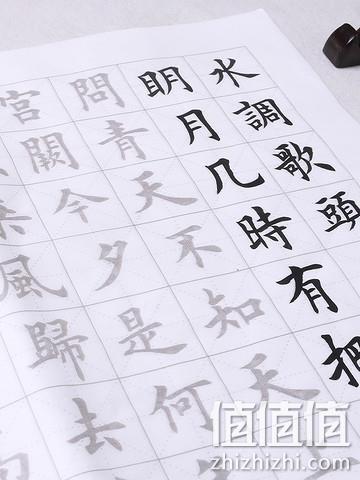 水調歌頭
明月几時有把
問青天不知天
宮闕今夕是何
風歸去
值值值
zhizhizhi.com